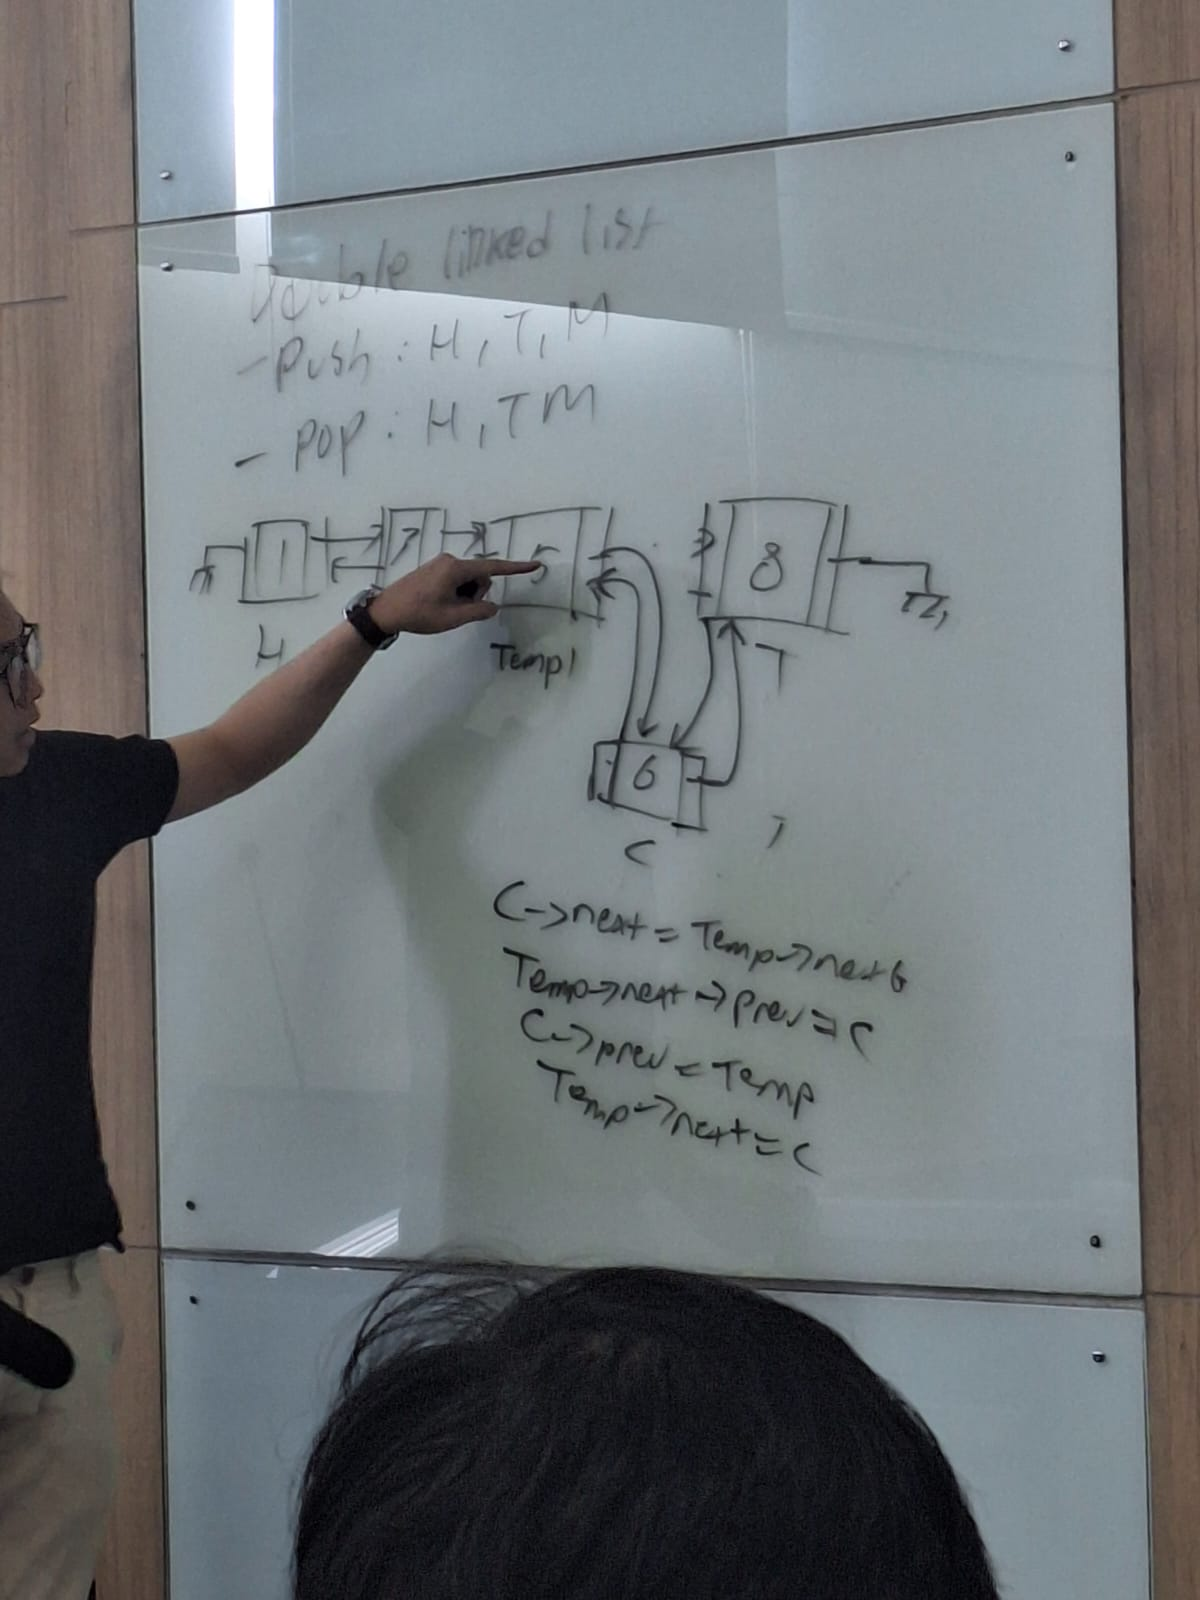 Double linked list
- Push : H, T, M
- Pop : H, T M
1 5 8
H Temp1 T
6
C
C->next = Temp->next
Temp->next->prev = C
C->prev = Temp
Temp->next = C